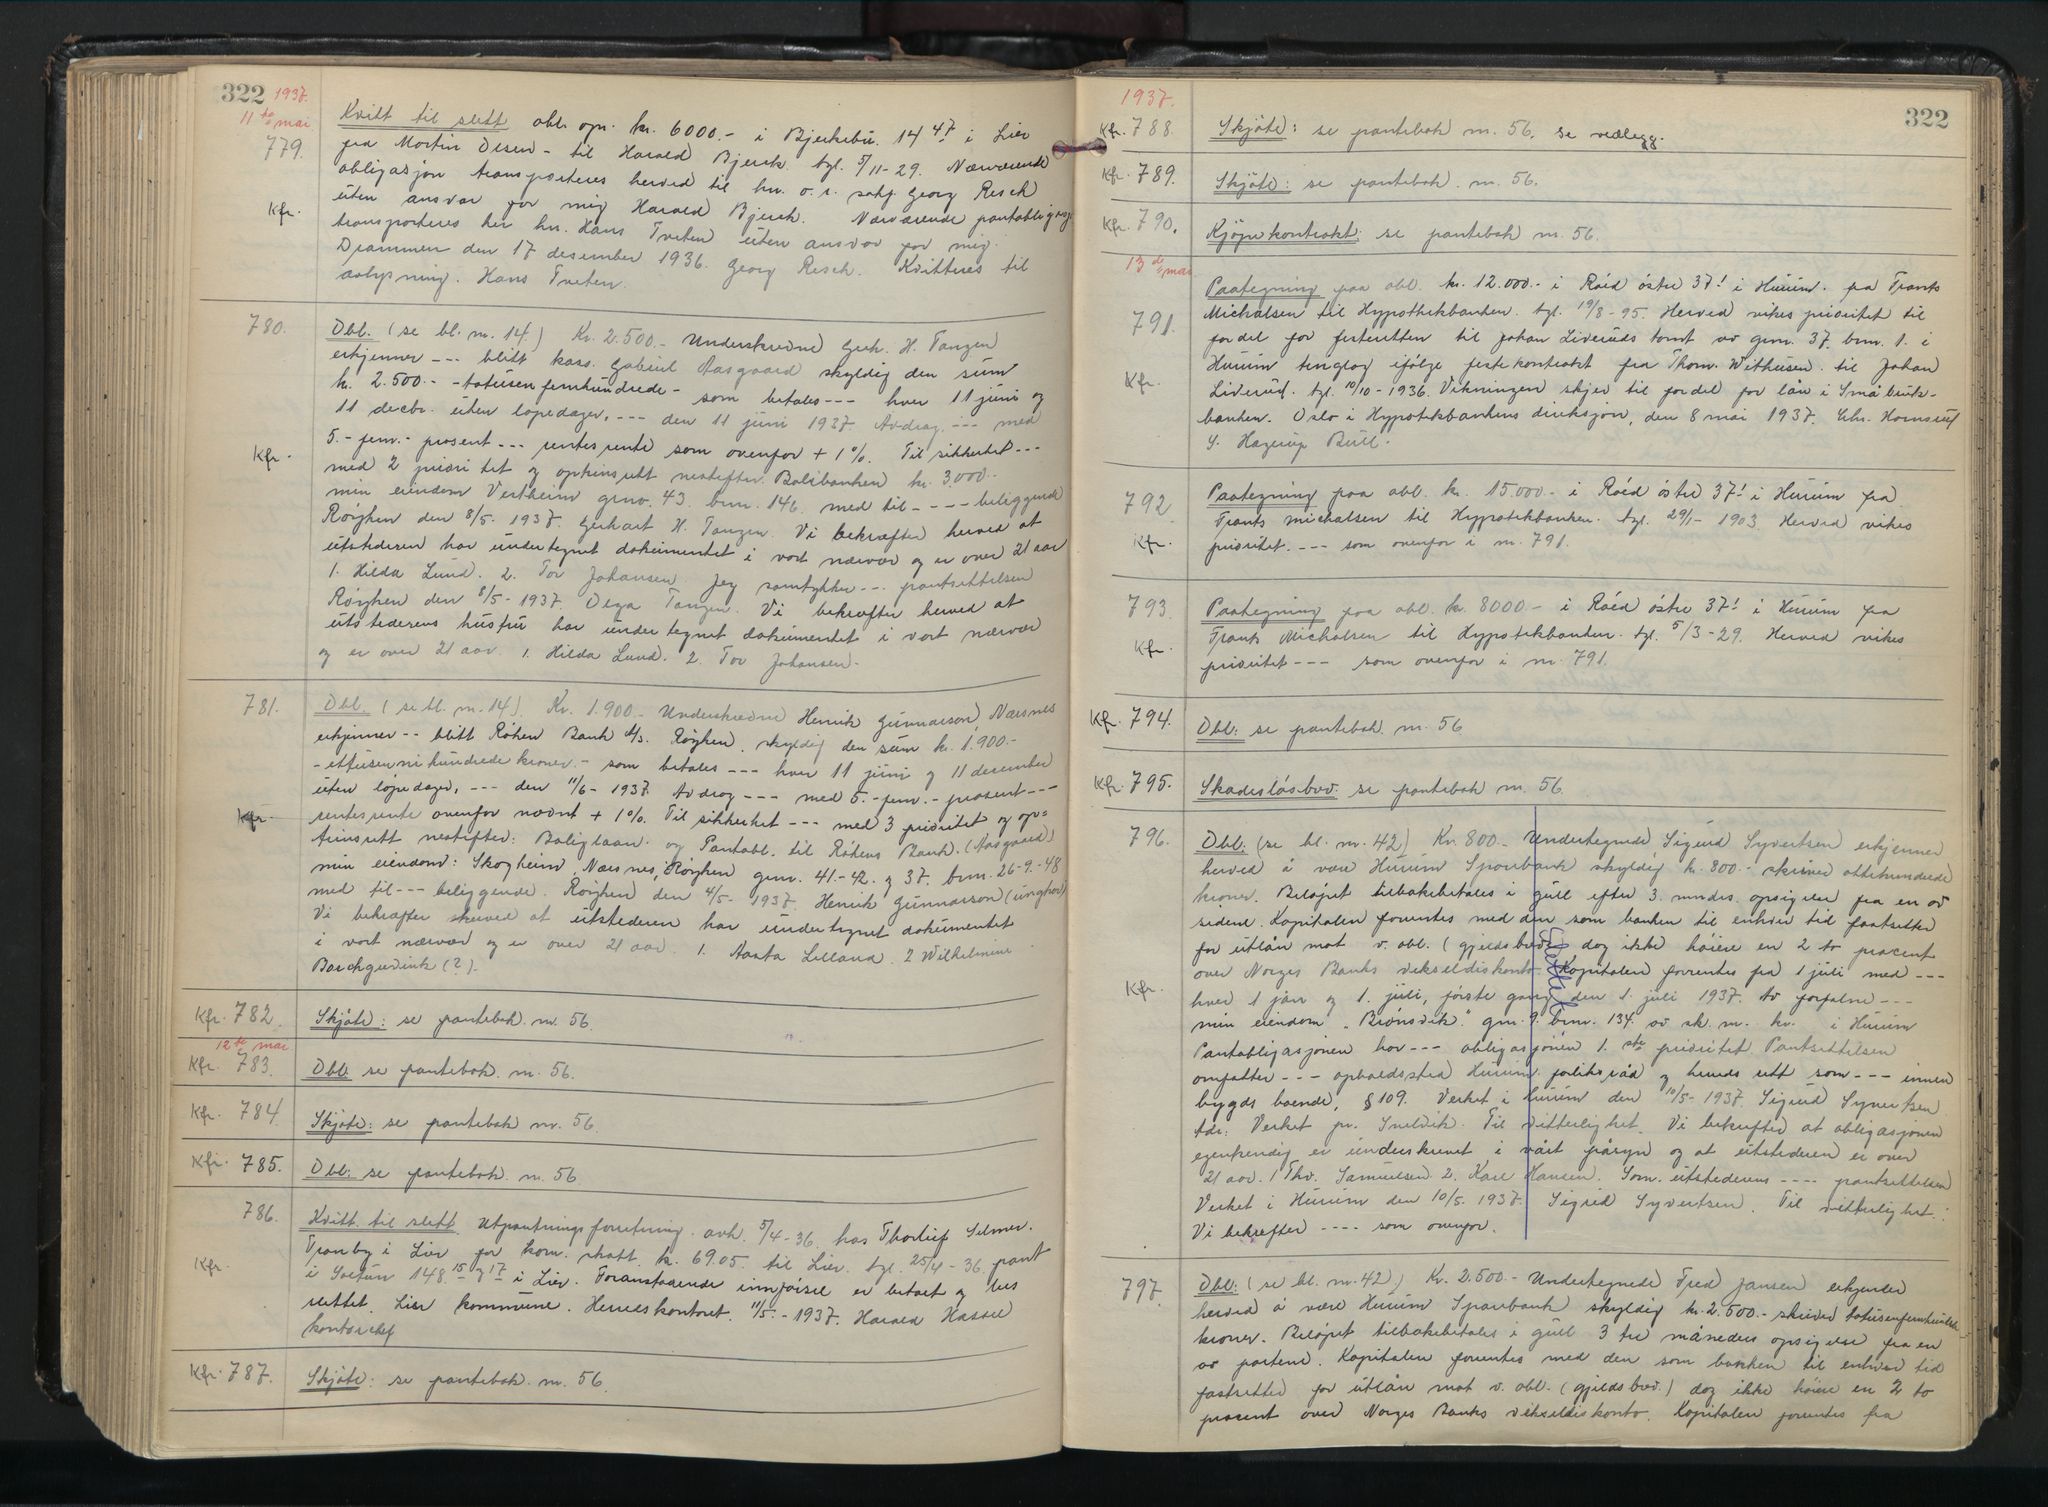 322 1937.
11te mai
779. Kvitt til slett obl. opr. kr. 6000.- i Bjerkebu. 14 47 i Lier
fra Martin Olsen - til Harald Bjerck. tgl. 5/11-29. Nærværende
obligasjon transporteres herved til hr. o.r. sakf Georg Resch
Kfr. uten ansvar for mig Harald Bjerck. Nærværende pantobligasj.
transporteres her hr. Hans Tveten uten ansvar for mig.
Drammen den 17 desember 1936. Georg Resch. Kvitteres til
avlysning. Hans Tveten.
780. Obl. (se bl. nr. 14.) Kr. 2.500.- Underskrevne Gerh. H. Tangen
erkjenner --- blitt kass. Gabriel Aasgaard skyldig den sum
kr. 2.500.- -totusenfemhundrede- som betales --- hver 11 juni og
11 decbr. uten løpedager, --- den 11 juni 1937. Avdrag --- med
5.- fem.- prosent --- rentesrente som ovenfor + 1%. Til sikkerhet ---
Kfr. med 2 prioritet og optrinsrett nestefter Bolibanken kr. 3.000.-
min eiendom Vertheim grno. 43. brnr. 146. med til ---- beliggende
Røyken den 8/5. 1937. Gerhart H. Tangen. Vi bekræfter herved at
utstederen har undertegnet dokumentet i vort nærvær og er over 21 aar
1. Hilda Lund. 2. Tor Johansen. Jeg samtykker --- pantsettelsen
Røyken den 8/5-1937. Olga Tangen. Vi bekræfter herved at
utstederens hustru har undertegnet dokumentet i vort nærvær
og er over 21 aar. 1. Hilda Lund. 2. Tor Johansen.-
781. Obl. (se bl. nr. 14). Kr. 1.900.- Underskrevne Henrik Gunnarson, Nærsnes
erkjenner -- blitt Røken Bank A/S. Røyken, skyldig den sum kr. 1.900.-
- ettusennihundrede kroner.- som betales --- hver 11 juni og 11 desember
uten løpedager, --- den 11/6-1937. Avdrag --- med 5.- fem.- prosent ---
Kfr. rentesrente ovenfor nævnt + 1%. Til sikkerhet --- med 3 prioritet og op=
trinsrett nestefter: Boliglaan og Pantobl. til Røkens Bank. (Aasgaard)
min eiendom: Skogheim, Nærsnes, Røyken gnr. 41.-42. og 37. brnr. 26-9.-48
med til --- beliggende. Røyken den 4/5-1937. Henrik Gunnarson (ungkar)
Vi bekræfter herved at utstederen har undertegnet dokumentet
i vort nærvær og er over 21 aar. 1. Aasta Lilland. 2 Wilhelmine
Borchgrevink (?).
Kfr. 782. Skjøte: se pantebok nr. 56.
12te mai
Kfr. 783. Obl: se pantebok. nr. 56.
Kfr. 784. Skjøte: se pantebok nr. 56.
Kfr. 785. Obl: se pantebok. nr. 56
786. Kvitt. til slett. Utpantningsforretning avh. 5/4-36 hos Thorleif Selmer.
Tranby i Lier for kom. skatt kr. 69.05. til Lier. tgl. 25/4-36 pant
Kfr. i Soltun 148. 15 og 17 i Lier. Foranstaaende innførsel er betalt og bes
slettet. Lier kommune. Herredskontoret. 11/5.-1937. Harald Hassel
kontorchef
Kfr. 787. Skjøte: se pantebok. nr. 56.
1937. 322
Kfr. 788. Skjøte: se pantebok nr. 56. se vedlegg.
Kfr. 789. Skjøte: se pantebok. nr. 56.
Kfr. 790. Kjøpekontrakt: se pantebok nr. 56.
13de mai
791. Paategning paa obl. kr. 12.000.- i Røed østre 37.1 i Hurum. fra Frants
Michalsen til Hypothekbanken. tgl. 19/8-95. Herved vikes prioritet til
fordel for festeretten til Johan Liveruds tomt av gnr. 37. brnr. 1. i
Hurum tinglyst ifølge festekontrakt fra Thom. Withusen til Johan
Kfr. Liverud. tgl. 10/10-1936. Vikningen skjer til fordel for lån i Småbruk-
banken. Oslo i Hypotekbankens direksjon, den 8 mai 1937. Chr. Hornsrud
E. Hagerup Bull.
792 Paategning paa obl. kr. 15.000.- i Røed østre 37.1 i Hurum fra
Frants Michalsen til Hypotekbanken. tgl. 29/1-1903. Herved vikes
Kfr. prioritet. --- som ovenfor i nr. 791.
793. Paategning paa obl. kr. 8000.- i Røed østre 37.1 i Hurum fra
Frants Michalsen til Hypotekbanken. tgl. 5/3-29. Herved vikes
Kfr. prioritet --- som ovenfor i nr. 791.
Kfr. 794. Obl: se pantebok. nr. 56
Kfr. 795. Skadesløsbrev: se pantebok nr. 56.
796. Obl: (se bl. nr. 42) Kr. 800.- Undertegnede Sigurd Syvertsen erkjenner
herved å være Hurum Sparebank skyldig kr. 800.- skriver ottehundrede
kroner. Beløpet tilbakebetales i gull efter 3 mndrs. opsigelse fra en av
sidene. Kapitalen forrentes med den som banken til enhver tid fastsetter
for utlån mot v. obl. (gjeldsbrev) dog ikke høiere en 2 to procent
over Norges Banks vekseldiskonto. Kapitalen forrentes fra 1 juli med ---
Kfr. hver 1 jan og 1. juli, første gang den 1. juli 1937. Av forfalne ---
Slettet
min eiendom "Brønsvik." gnr. 9. brnr. 134. av sk. m. kr. i Hurum
Pantobligasjonen har --- obligasjonen 1. ste prioritet. Pantsettelsen
omfatter --- opholdssted Hurum forliksråd og herreds rett som --- innen
bygds boende, § 109. Verket i Hurum den 10/5-1937. Sigurd Syvertsen
adr: Verket pr. Snelvik. Til vitterlighet. Vi bekrefter at obligasjonen
egenhendig er underskrevet i vårt påsyn og at utstederen er over
21 aar. 1 Thv. Samuelsen 2. Karl Hansen. Som utstederens ---- pantsettelsen
Verket i Hurum den 10/5. 1937. Sigrid Syvertsen. Til vitterlighet:
Vi bekrefter ---- som ovenfor.
797. Obl: (se bl. nr. 42.) Kr. 2.500.- Undertegnede Fred Jansen erkjender
herved å være Hurum Sparebank skyldig kr. 2.500.- skriver totusenfemhundrede
kroner. Beløpet tilbakebetales i gull 3 tre måneders opsigelse fra en
av partene. Kapitalen forrentes med den som banken til enhver tid
fastsetter for utlån mot v. obl. (gjeldsbrev.) dog ikke høiere en 2 to
prosent over Norges Banks vekseldiskonto. Kapitalen forrentes fra